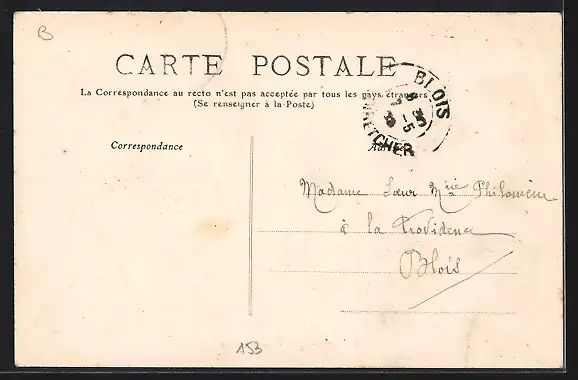 B
CARTE POSTALE
La Correspondance au recto n'est pas acceptée par tous les pays étrangers
(Se renseigner à la Poste)
BLOIS
ET-CHER
Correspondance
Adresse
Madame Sœur Mie Philomène
à la Providence
Blois
153